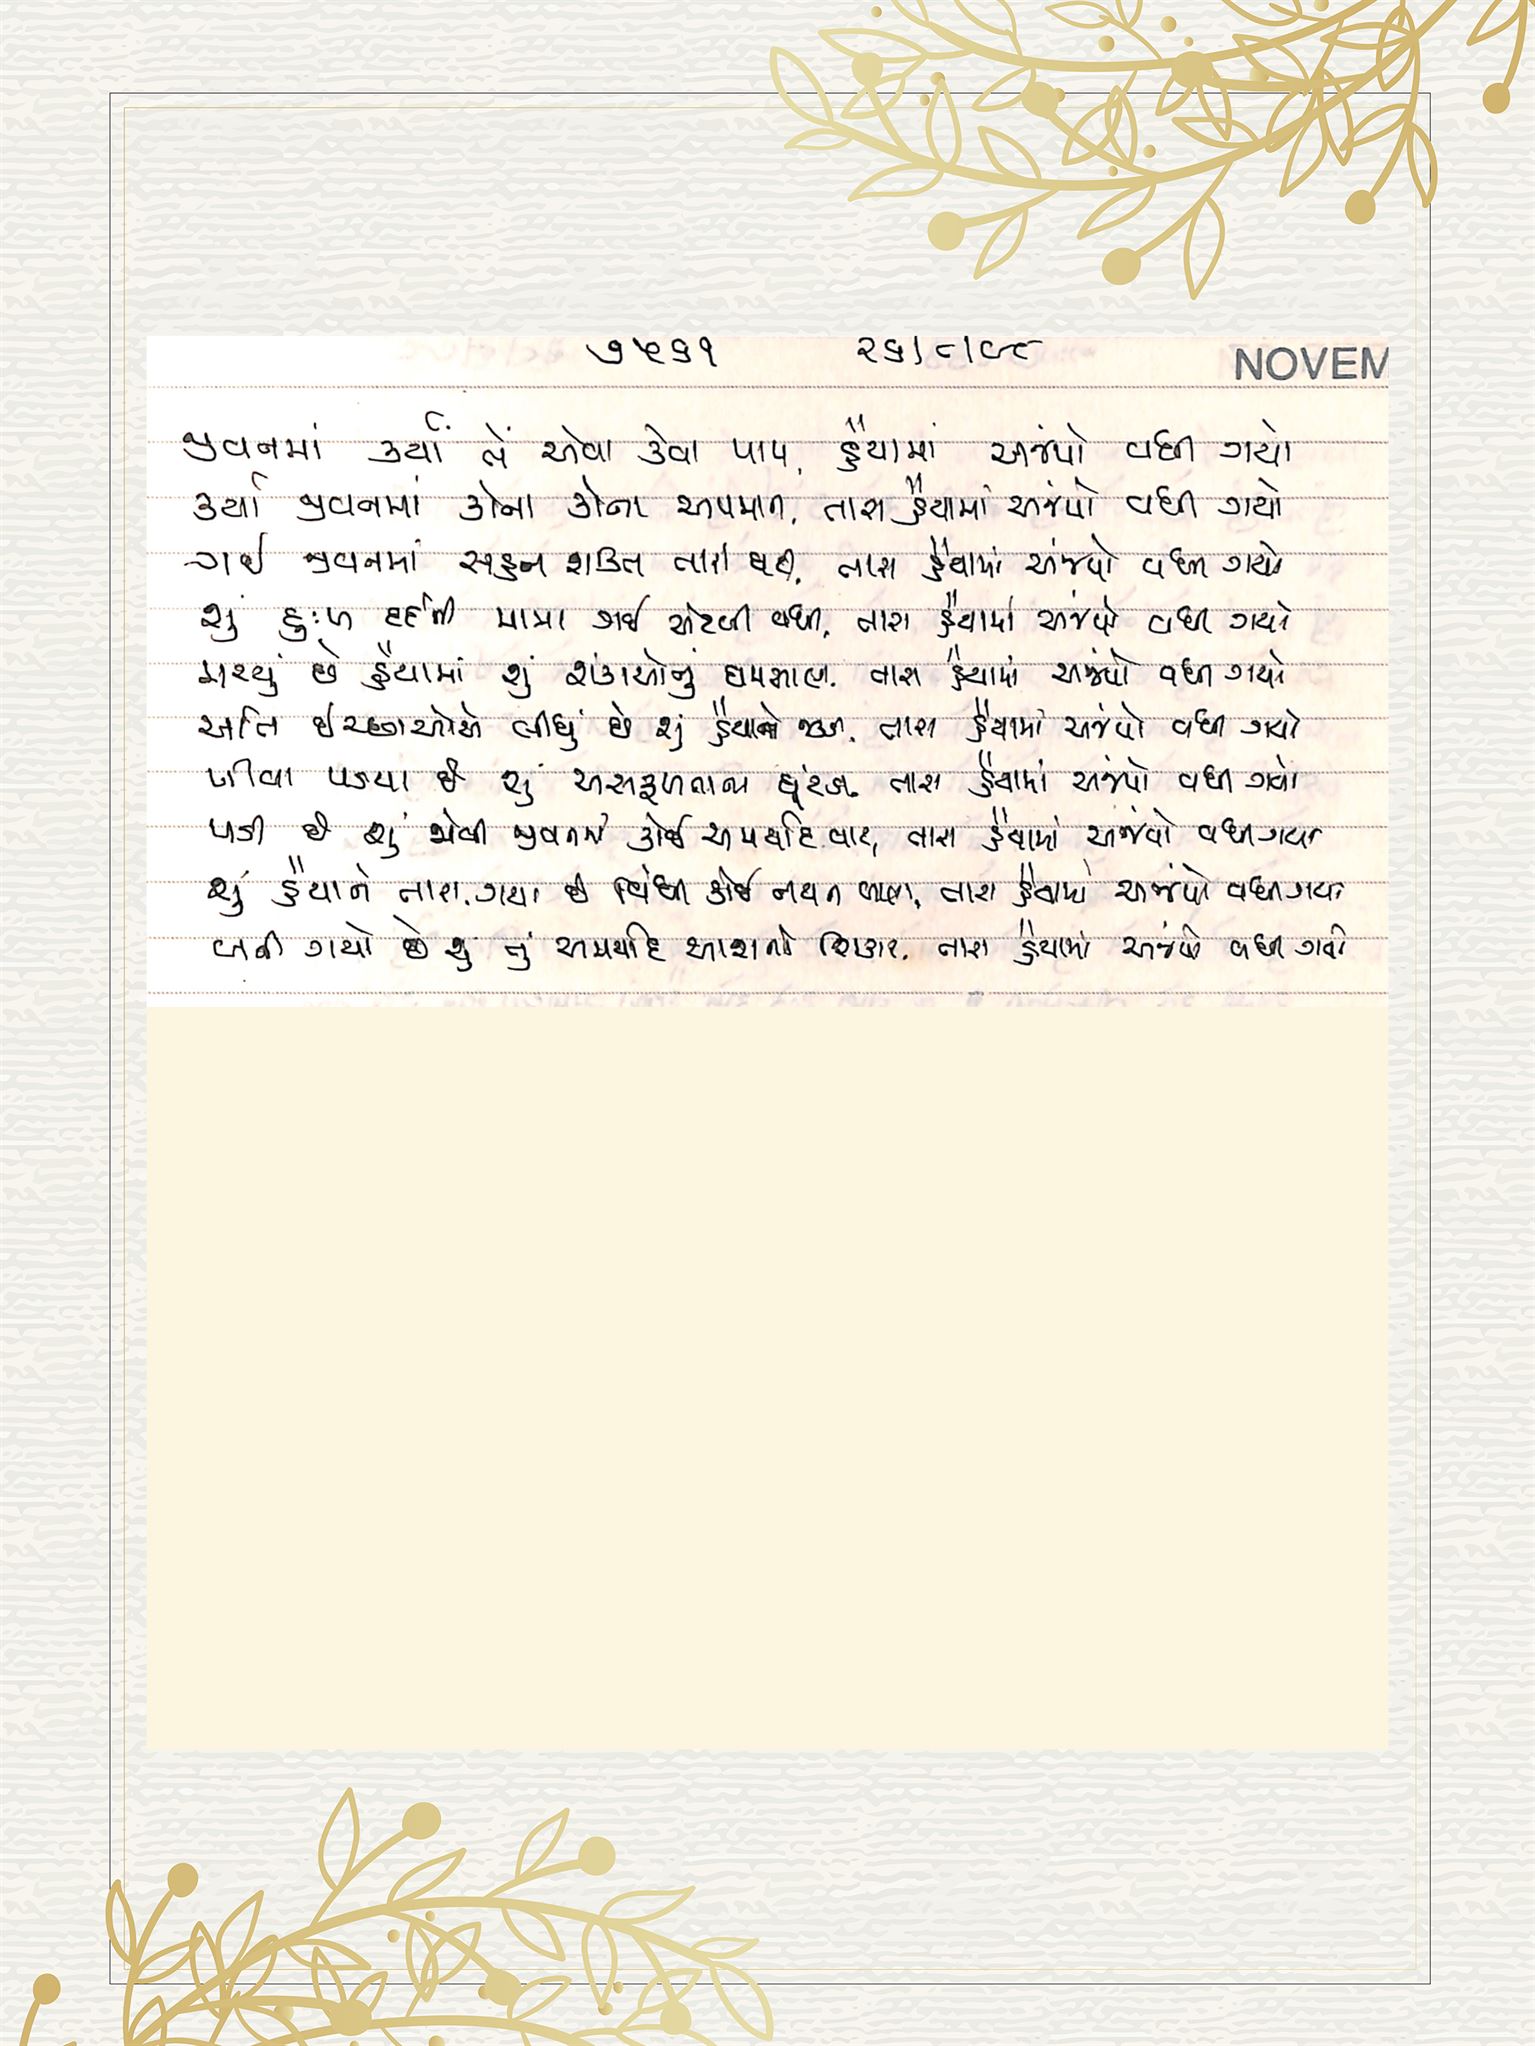 ૭૫૬૧ ૨૬/૮/૯૮ NOVEM
જીવનમાં કર્યાં તેં એવા કેવા પાપ, હૈયામાં અજંપો વધી ગયો
કર્યા જીવનમાં કોના કોના અપમાન, તારા હૈયામાં અજંપો વધી ગયો
ગઈ જીવનમાં સહન શક્તિ તારી ઘટી, તારા હૈયામાં અજંપો વધી ગયો
શું દુઃખ દર્દની માત્રા ગઈ એટલી વધી, તારા હૈયામાં અજંપો વધી ગયો
મચ્યું છે હૈયામાં શું શંકાઓનું ઘમસાણ, તારા હૈયામાં અજંપો વધી ગયો
અતિ ઈચ્છાઓએ લીધું છે શું હૈયાનો કબજો, તારા હૈયામાં અજંપો વધી ગયો
પીવા પડયા છે શું અસફળતાના ઘૂંટડા, તારા હૈયામાં અજંપો વધી ગયો
પડી છે શું જોવી જીવનમાં કોઈ અમર્યાદિ વાટ, તારા હૈયામાં અજંપો વધી ગયો
શું હૈયાને તારા, ગયા છે વિંધી કોઈ નયન બાણ, તારા હૈયામાં અજંપો વધી ગયો
બની ગયો છે શું તું અમર્યાદિ આશાનો શિકાર, તારા હૈયામાં અજંપો વધી ગયો